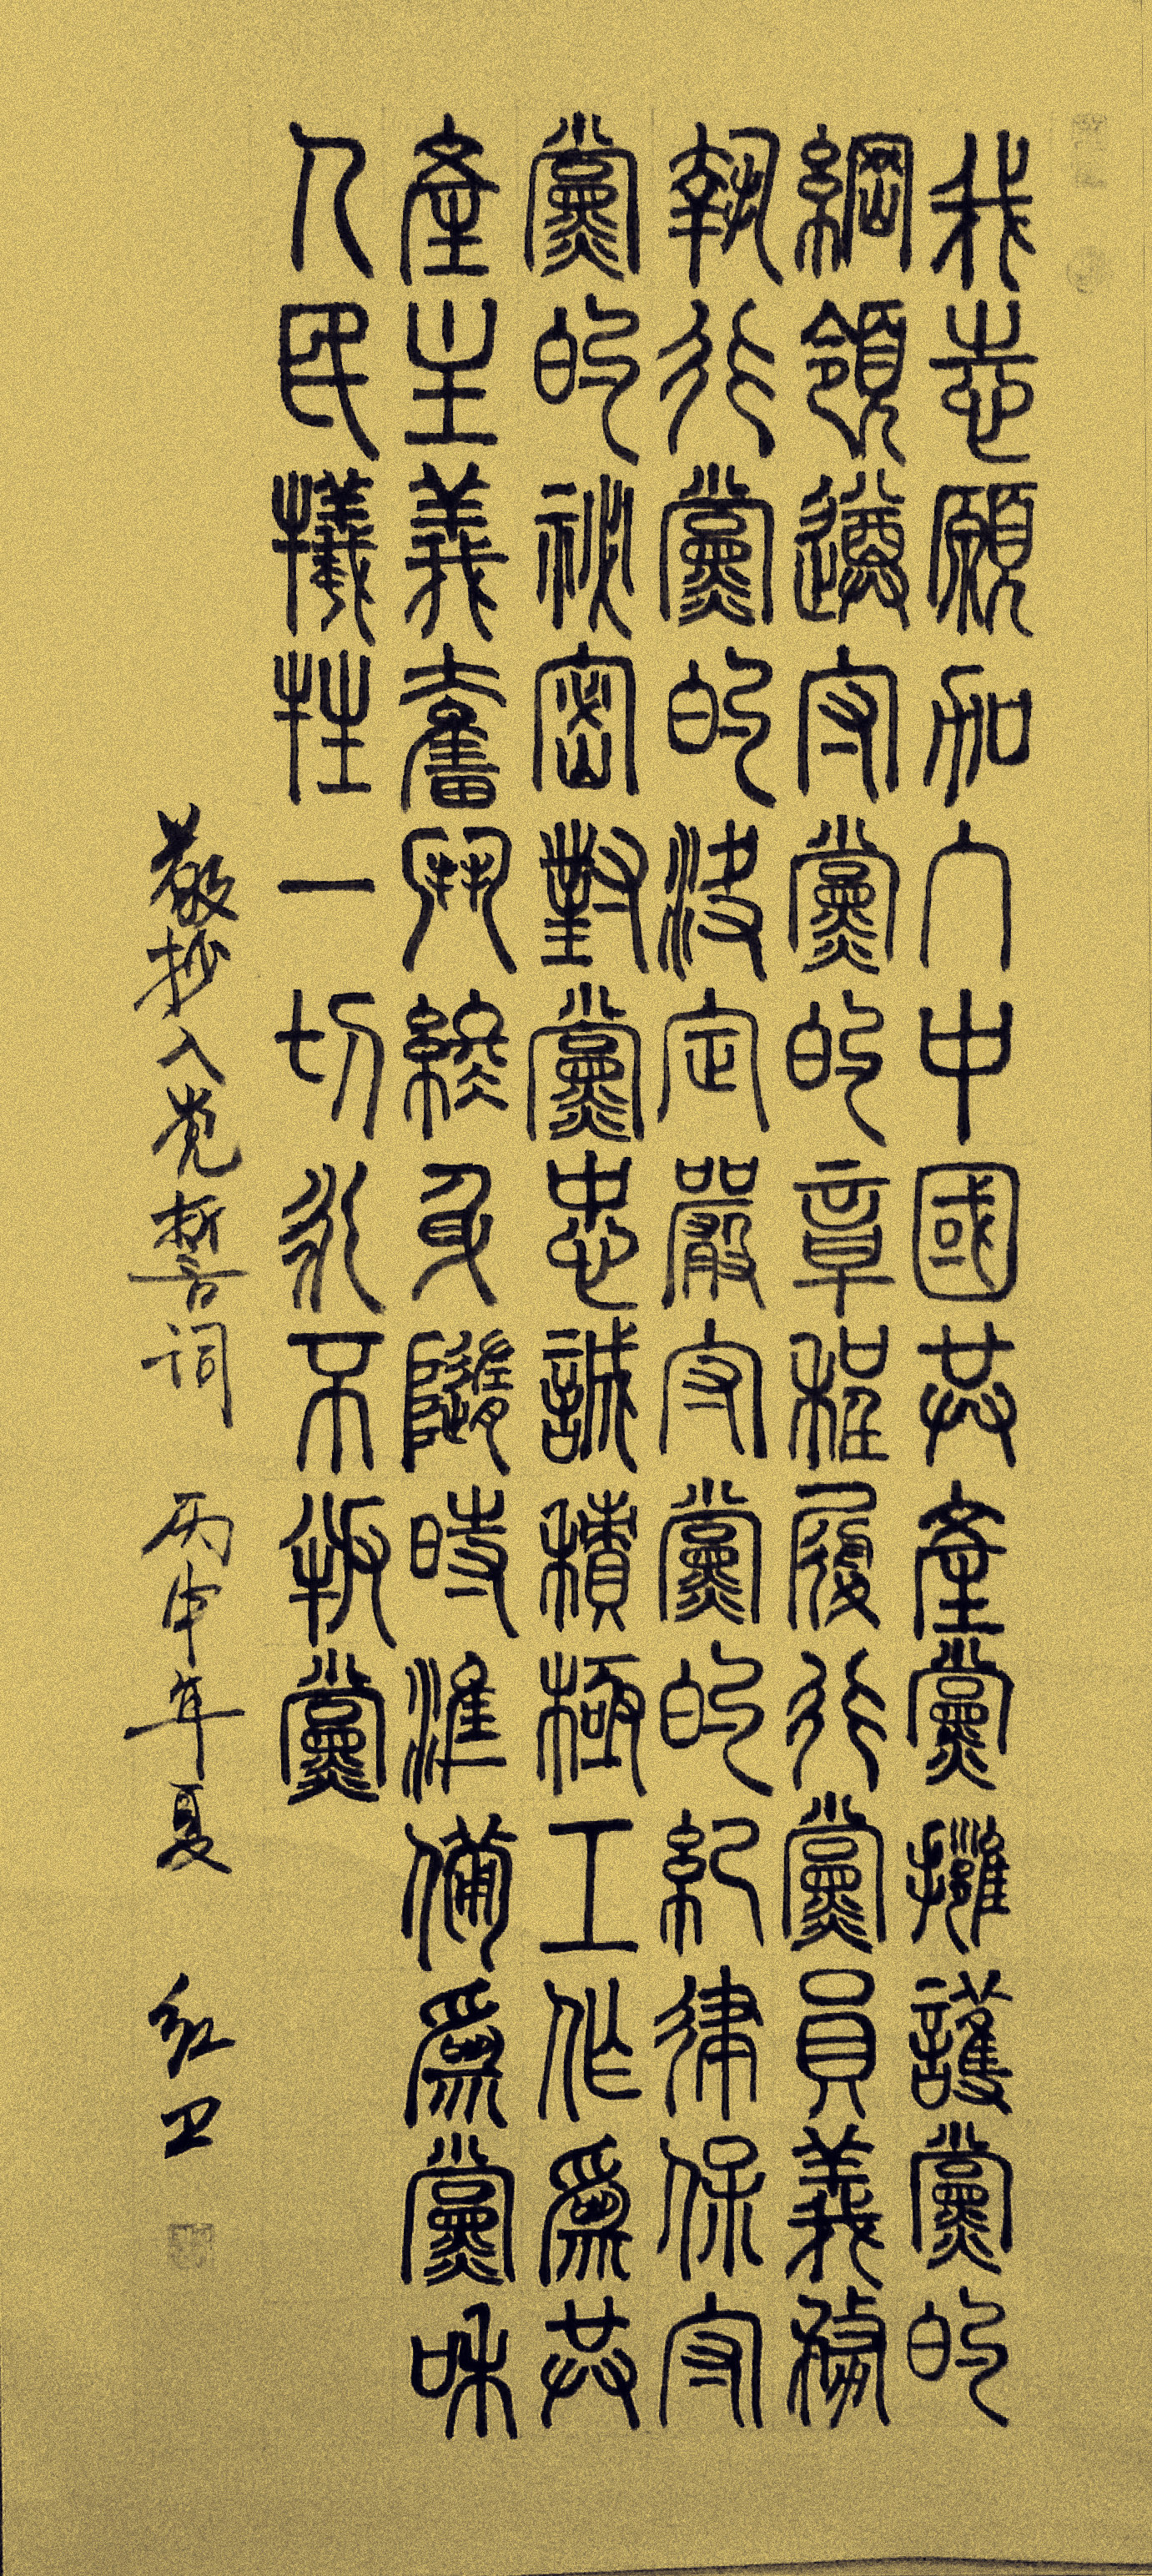 我志願加入中國共產黨擁護黨的
綱領遵守黨的章程履行黨員義務
執行黨的決定嚴守黨的紀律保守
黨的祕密對黨忠誠積極工作為共
產主義奮鬥終身隨時準備為黨和
人民犧牲一切永不叛黨
敬抄入党誓词 丙申年夏 红卫